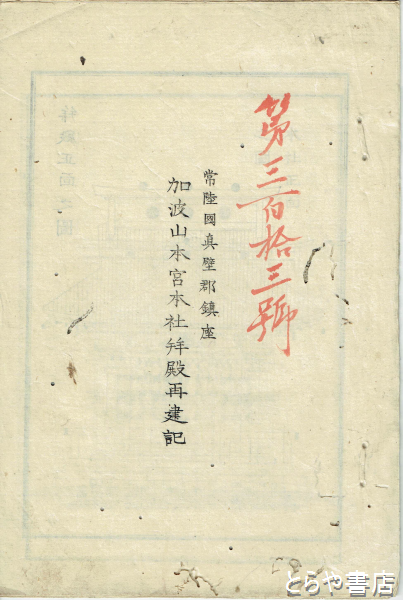 第三百拾三號
常陸國真壁郡鎮座
加波山本宮本社拜殿再建記
拜殿正面之圖
とらや書店